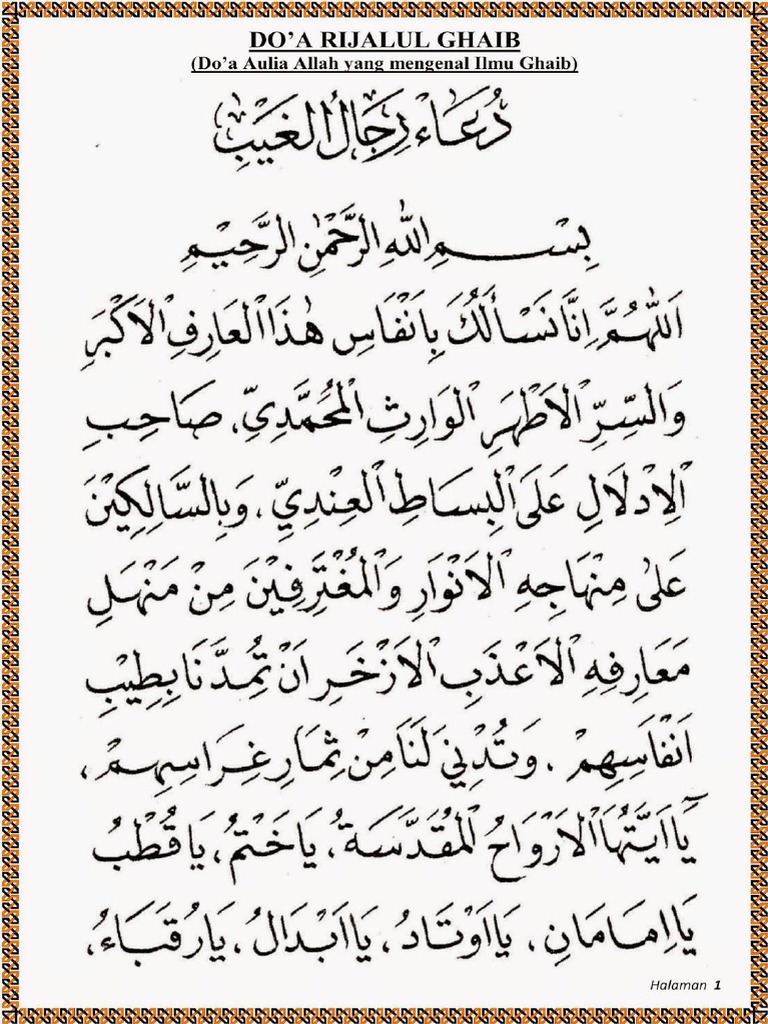 DO’A RIJALUL GHAIB
(Do’a Aulia Allah yang mengenal Ilmu Ghaib)
دُعَاءُ رِجَالُ الْغَيْبِ
بِسْــــمِ اللهِ الرَّحْمٰنِ الرَّحِيْمِ
اَللّٰهُمَّ اِنَّا نَسْأَلُكَ بِاَنْفَاسِ هٰذَا الْعَارِفِ الْاَكْبَرِ
وَالسِّرِّ الْاَطْهَرِ الْوَارِثِ الْمُحَمَّدِيِّ، صَاحِبِ
الْاِدْلَالِ عَلَى الْبِسَاطِ الْعِنْدِيِّ، وَبِالسَّالِكِيْنَ
عَلٰى مِنْهَاجِهِ الْاَنْوَارِ وَالْمُغْتَرِفِيْنَ مِنْ مَنْهَلِ
مَعَارِفِهِ الْاَعْذَبِ الْاَزْخَرِ اَنْ تُمِدَّنَا بِطِيْبِ
اَنْفَاسِهِمْ، وَتُدْنِيَ لَنَا مِنْ ثِمَارِ غِرَاسِهِمْ،
يَآ اَيَّتُهَا الْاَرْوَاحُ الْمُقَدَّسَةُ، يَا خَتْمُ، يَا قُطْبُ
يَا اِمَامَانِ، يَا اَوْتَادُ، يَا اَبْدَالُ، يَا رُقَبَاءُ،
Halaman 1